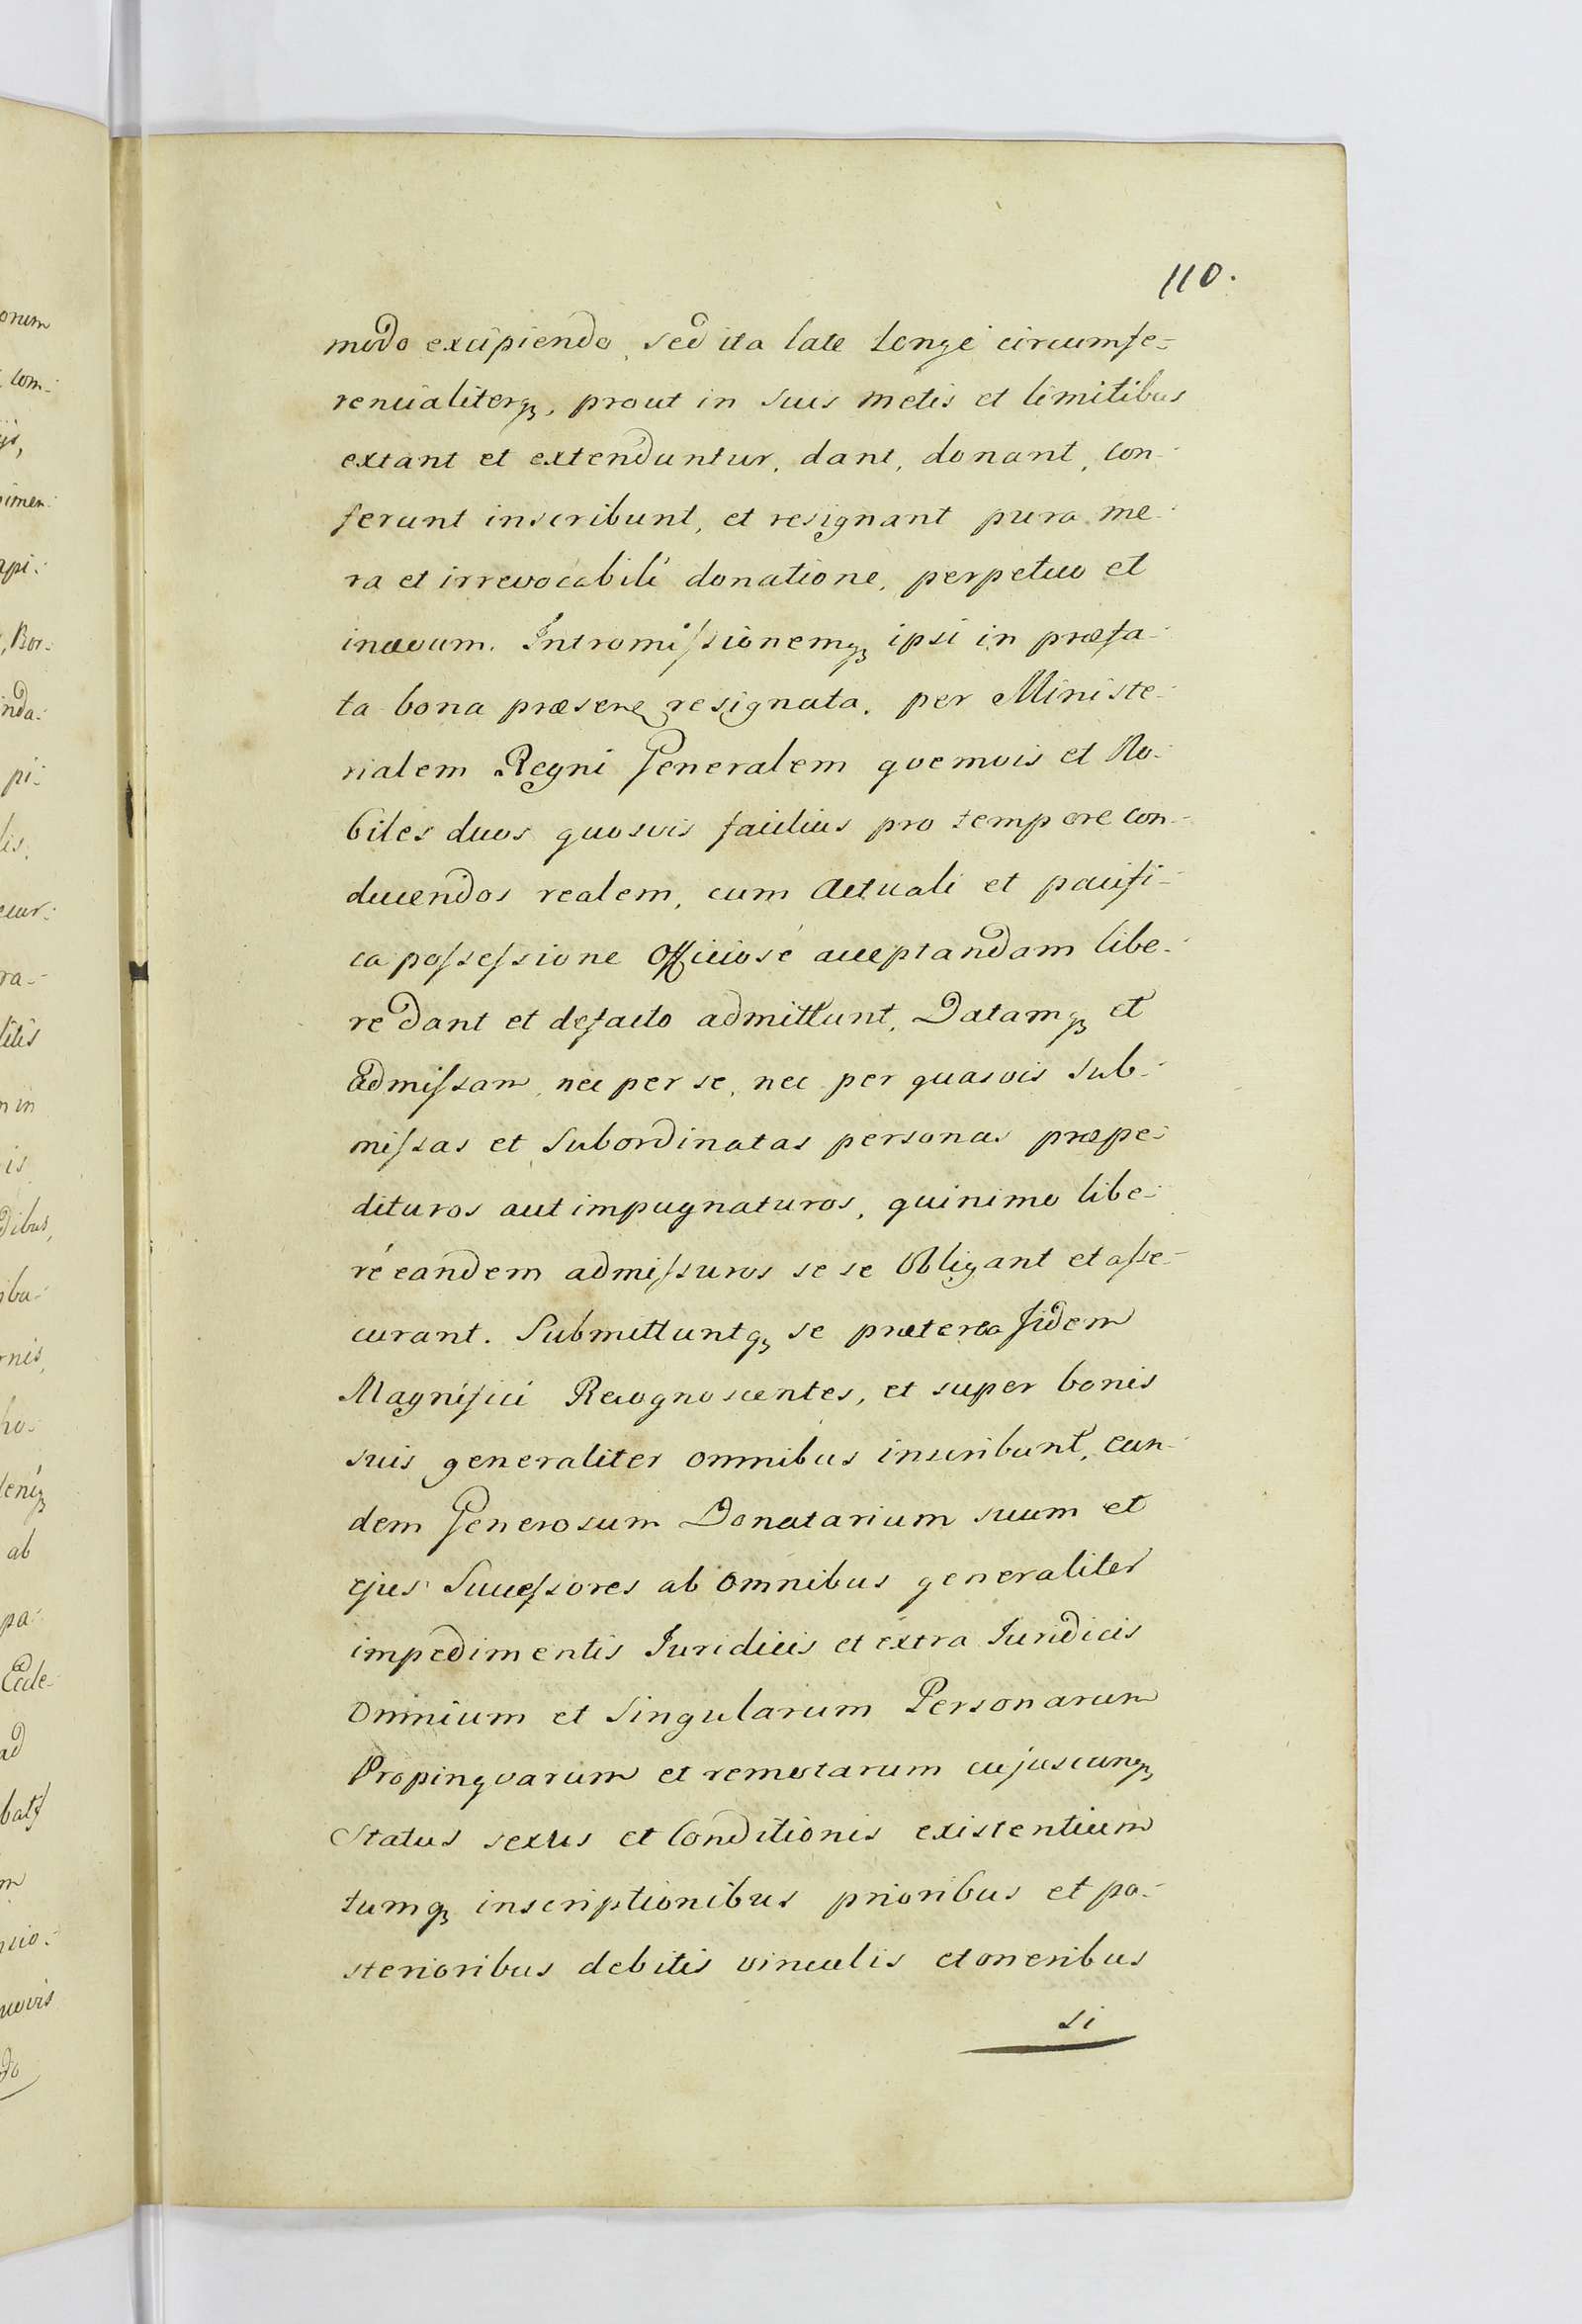 110.
modo excipiendo, sed ita late longe circumfe-
rencialiterq3, prout in suis metis et limitibus
extant et extenduntur, dant, donant, con-
ferunt inscribunt, et resignant pura me-
ra et irrevocabili donatione, perpetuo et
inaevum. Intromissionemq3 ipsi in praefa-
ta bona praesene resignata, per Ministe-
rialem Regni Generalem quemvis et No-
biles duos quosvis facilius pro tempore con-
ducendos realem, cum Actuali et pacifi-
ca possessione Officiosé acceptandam libe-
re dant et defacto admittunt, Datamq3 et
admissam, nec per se, nec per quasvis sub-
missas et subordinatas personas praepe-
dituros aut impugnaturos, quinimo libe-
ré eandem admissuros se se Obligant et asse-
curant. Submittuntq3 se praeterea Iidem
Magnifici Recognoscentes, et super bonis
suis generaliter omnibus inscribunt, eun-
dem Generosum Donatarium suum et
ejus Successores ab omnibus generaliter
impedimentis Iuridicis et extra Iuridicis
Omnium et Singularum Personarum
Propinquarum et remotarum cujuscunq3
Status sexus et Conditionis existentium
tumq3 inscriptionibus prioribus et po-
sterioribus debitis vinculis et oneribus
si
onum
com-
imen-
api-
, Bor-
nda-
pi-
lis,
ecur-
ra-
litis
n in
is
dibus,
ibu-
rnis,
ho-
ab
pa-
Eccle-
ad
m
nsio-
uovis
do